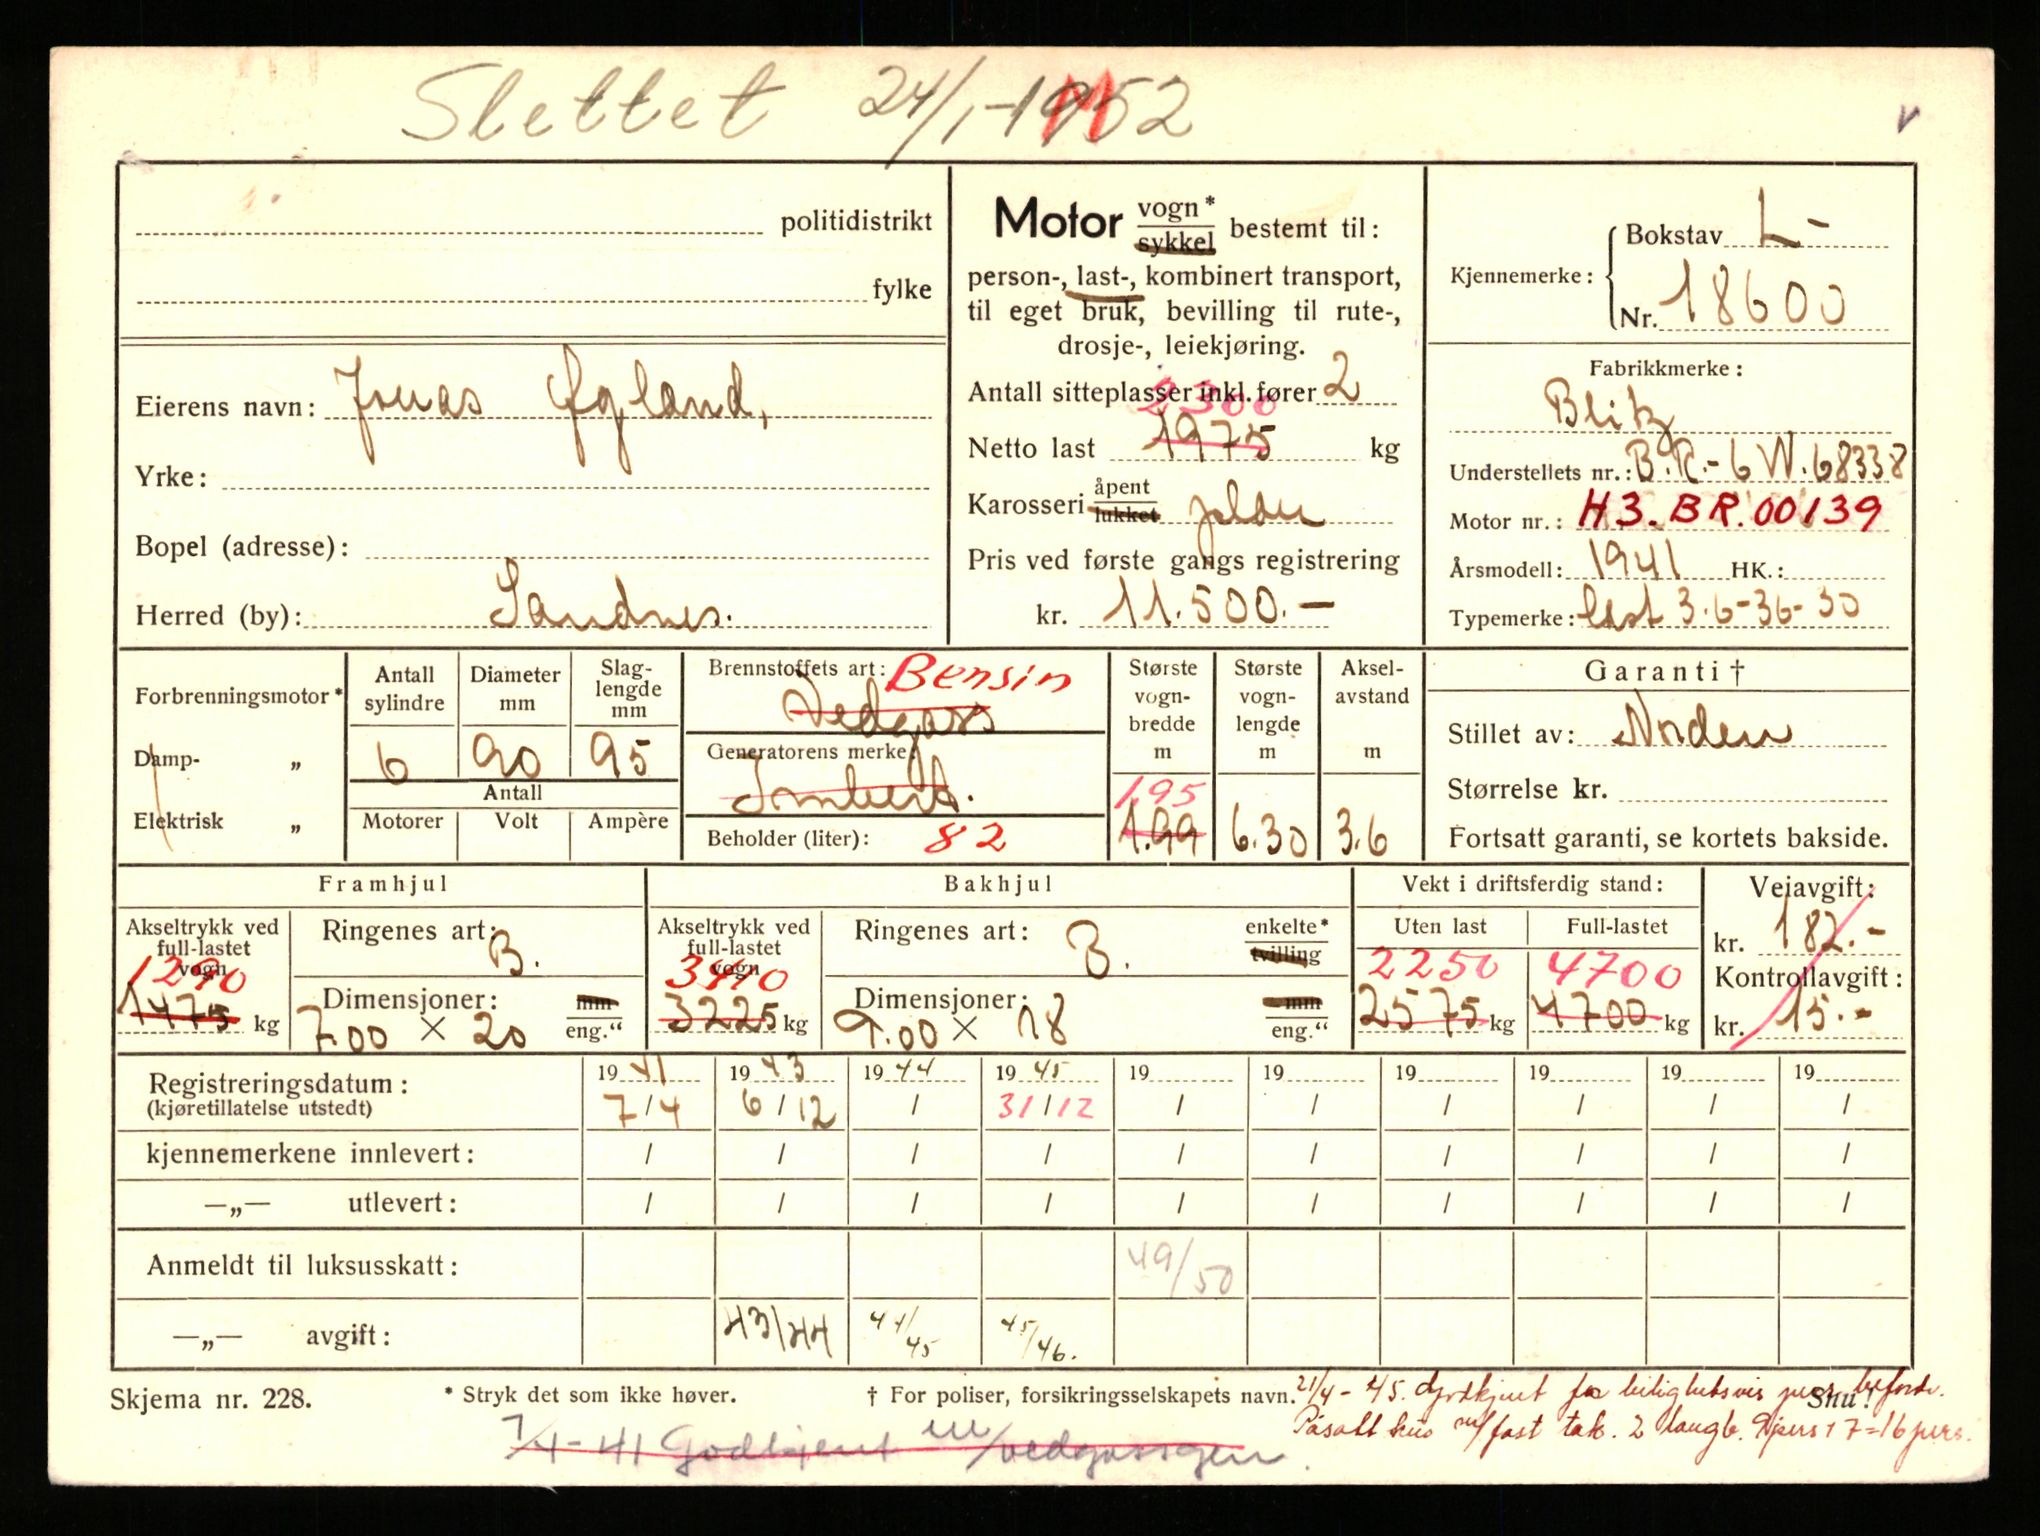 Slettet 24/1-1952
M
v
politidistrikt
fylke
Eierens navn: Jonas Øgland,
Yrke:
Bopel (adresse):
Herred (by): Sandnes.
Motor vogn* sykkel bestemt til:
person-, last-, kombinert transport,
til eget bruk, bevilling til rute-,
drosje-, leiekjøring.
Antall sitteplasser inkl. fører 2
2300
Netto last 1975 kg
Karosseri åpent lukket
Pris ved første gangs registrering
kr. 11.500.—
Kjennemerke: Bokstav L-
Nr. 18600
Fabrikkmerke:
Blitz
Understellets nr.: B.R.-6 W.68338
Motor nr.: H3.BR.00139
Årsmodell: 1941 HK.:
Typemerke: last 3.6-36-30
Forbrenningsmotor*
Damp- „
Elektrisk „
Antall sylindre 6
Diameter mm 90
Slag-lengde mm 95
Antall
Motorer Volt Ampère
Brennstoffets art: Bensin
Vedgass
Generatorens merke:
Imbert.
Beholder (liter): 82
Største vogn-bredde m
195
1.99
Største vogn-lengde m
6.30
Aksel-avstand m
3.6
Garanti †
Stillet av: Norden
Størrelse kr.
Fortsatt garanti, se kortets bakside.
Framhjul
Akseltrykk ved full-lastet vogn
1290
1475 kg
Ringenes art: B.
Dimensjoner: mm
7.00 × 20 eng.“
Bakhjul
Akseltrykk ved full-lastet vogn
3410
3225 kg
Ringenes art: B. enkelte* tvilling
Dimensjoner: mm
9.00 × 18 eng.“
Vekt i driftsferdig stand:
Uten last Full-lastet
2250 4700
2575 kg 4700 kg
Veiavgift:
kr. 182.-
Kontrollavgift:
kr. 15.-
Registreringsdatum: 19 41 19 43 19 44 19 45 19 19 19 19 19 19
(kjøretillatelse utstedt) 7/4 6/12 / 31/12 / / / / / /
kjennemerkene innlevert: / / / / / / / / / /
—„— utlevert: / / / / / / / / / /
Anmeldt til luksusskatt: 49/50
—„— avgift: 43/44 44/45 45/46.
Skjema nr. 228. * Stryk det som ikke høver. † For poliser, forsikringsselskapets navn. Snu!
21/4-45. Godkjent for leilighetsvis pers. beford.
Påsatt hus m/fast tak. 2 langb. 9 pers + 7 = 16 pers.
7/4-41 Godkjent m/vedgassgen.